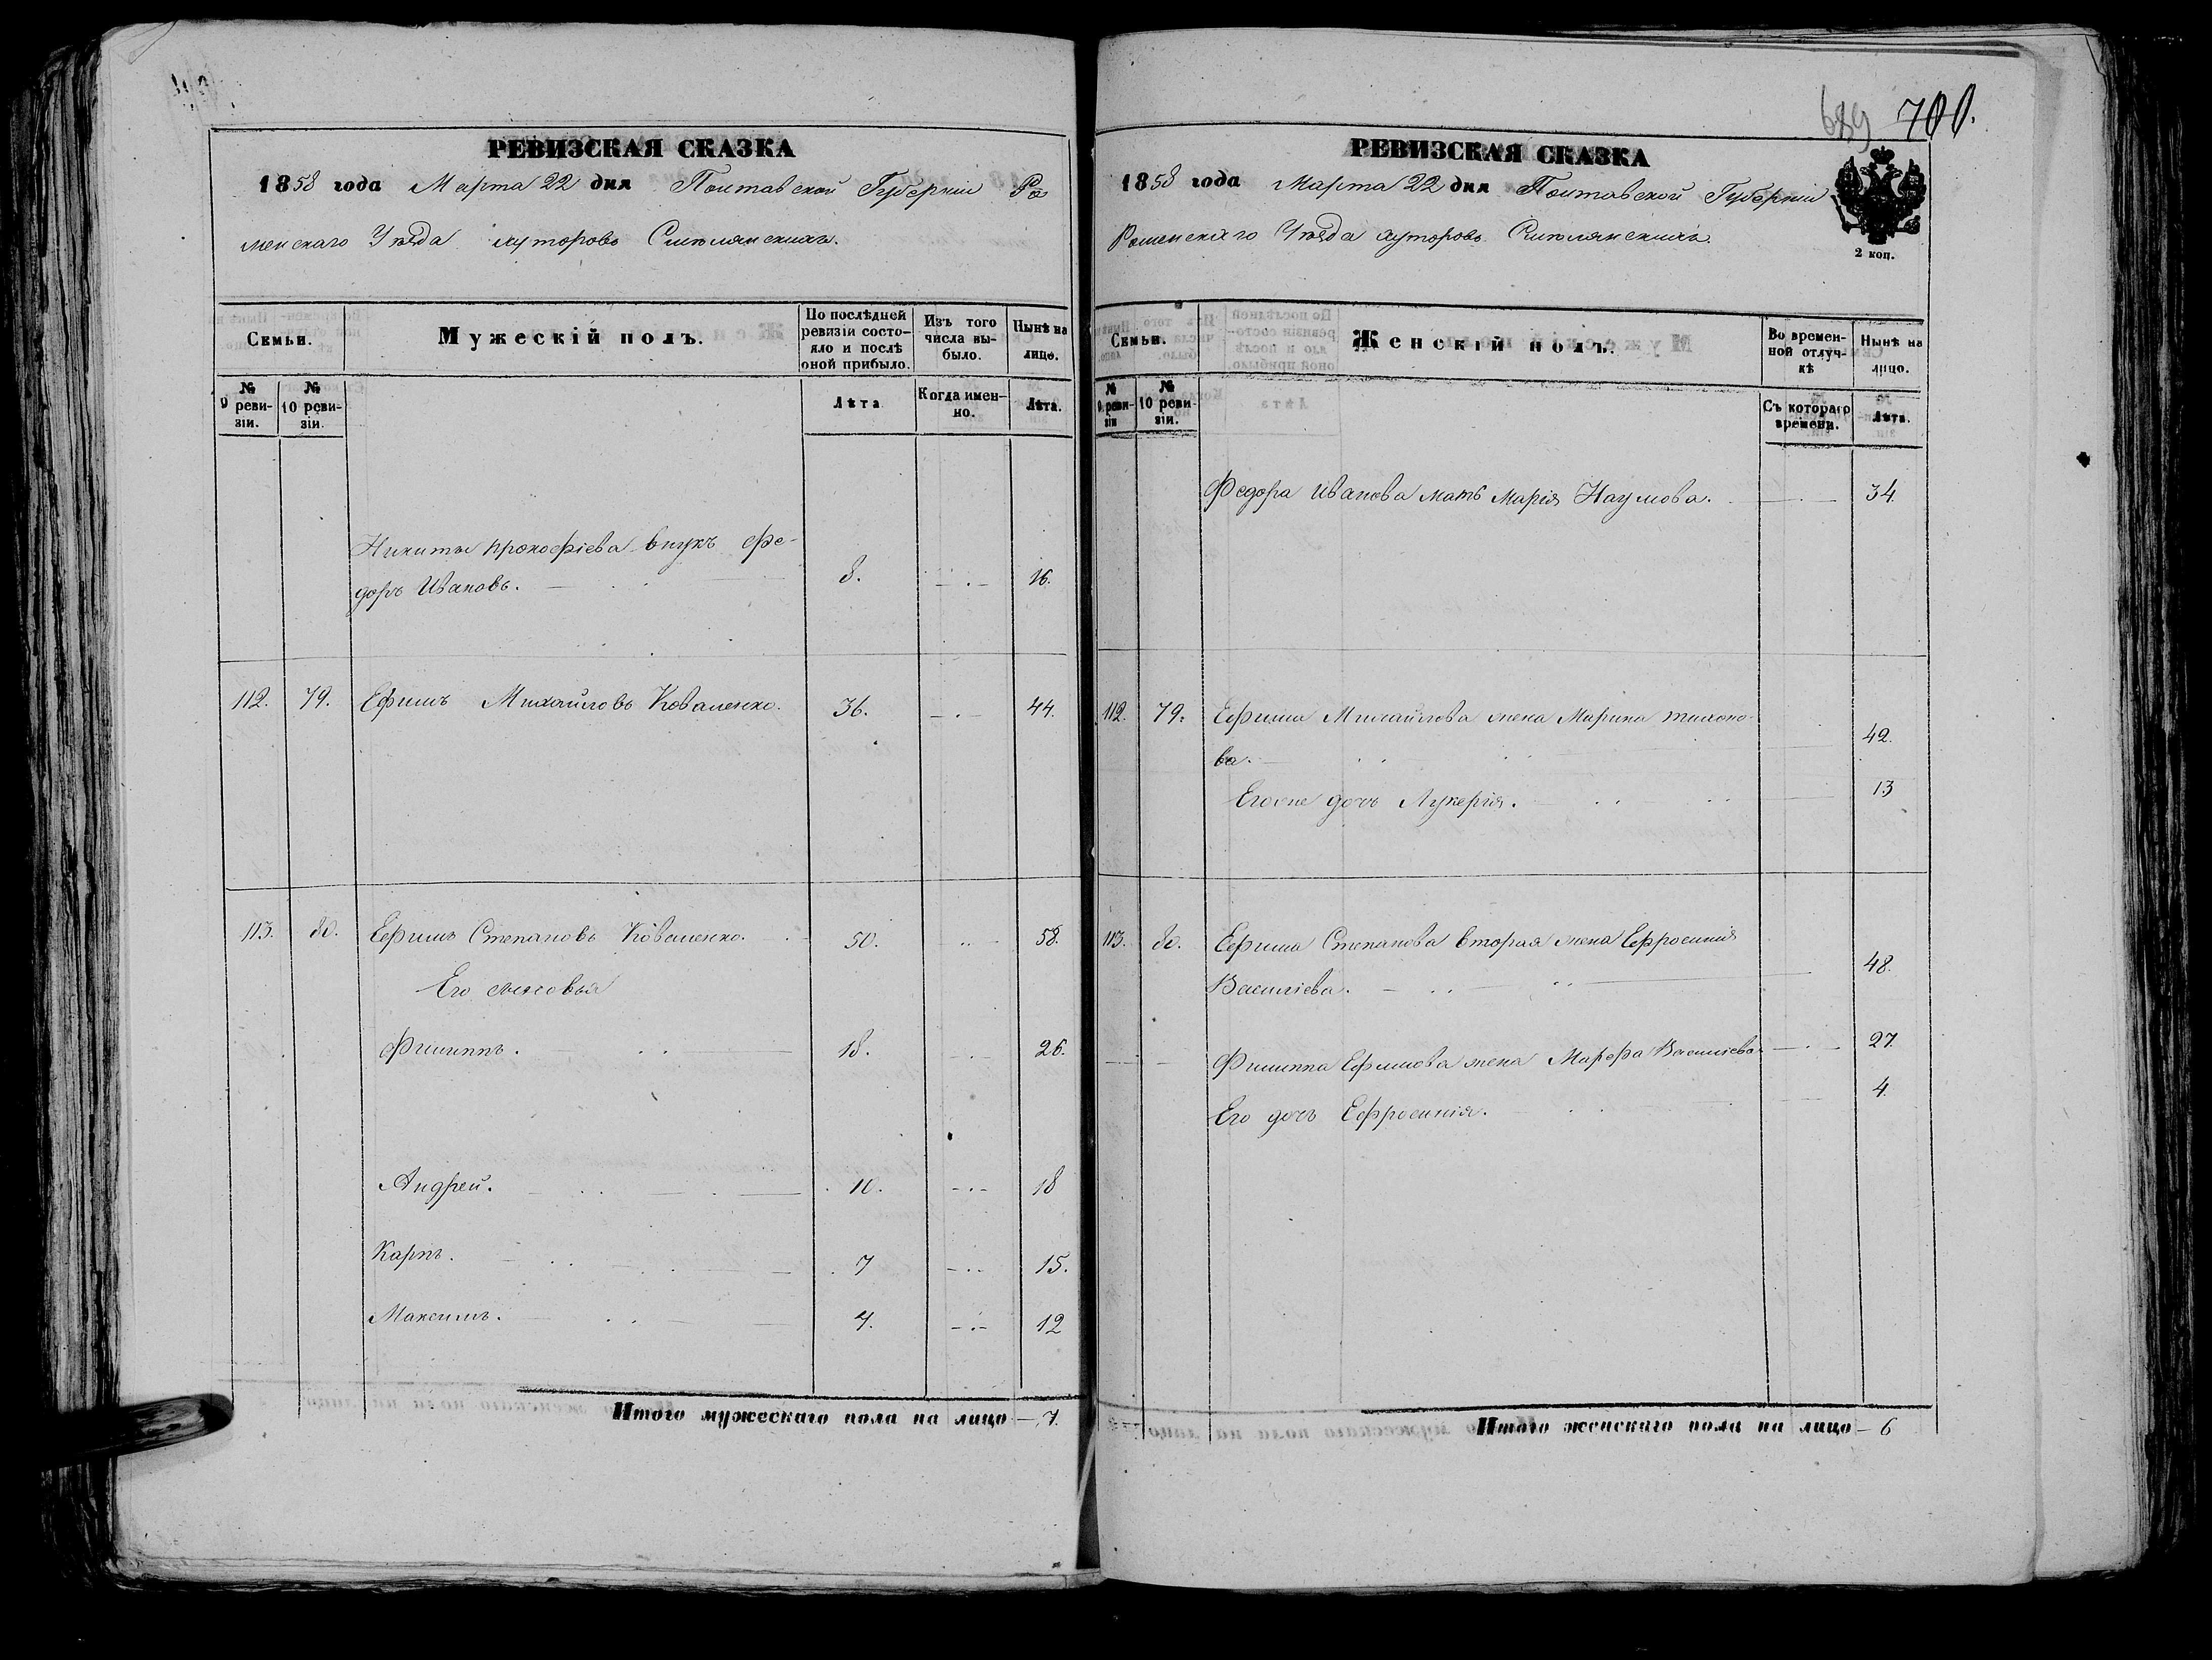 РЕВИЗСКАЯ СКАЗКА
1858 года Марта 22 дня Полтавской Губерніи Ро
менскаго Уѣзда хуторовъ Смѣлянскихъ.
Семьи.
Мужескій полъ.
По послѣдней ревизіи состояло и послѣ оной прибыло.
Изъ того числа выбыло.
Нынѣ на лице.
№ 9 ревизіи.
№ 10 ревизіи.
Лѣта
Когда именно.
Лѣта.
Никиты Прокофіева внукъ Фе-
доръ Ивановъ. 8. 16.
112. 79. Ефимъ Михайловъ Коваленко. 36. 44.
113. 80. Ефимъ Степановъ Коваленко. 50. 58.
Его сыновья
Филиппъ. 18. 26.
Андрей. 10. 18
Карпъ. 7 15.
Максимъ. 4. 12
Итого мужескаго пола на лицо 7.
689 700.
РЕВИЗСКАЯ СКАЗКА
1858 года Марта 22 дня Полтавской Губерніи
Роменскаго Уѣзда хуторовъ Смѣлянскихъ.
2 коп.
Семьи.
Женскій полъ.
Во временной отлучкѣ
Нынѣ на лицо.
№ 9 ревизіи
№ 10 ревизіи.
Съ котораго времени.
Лѣта.
Федора Иванова мать Марія Наумова. 34.
112. 79. Ефима Михайлова жена Марина Тихоно-
ва. 42.
Его же дочь Лукерія. 13
113. 80. Ефима Степанова вторая жена Ефросинія
Василіева. 48.
Филиппа Ефимова жена Марфа Василіева 27.
Его дочь Ефросинія. 4.
Итого женскаго пола на лицо 6